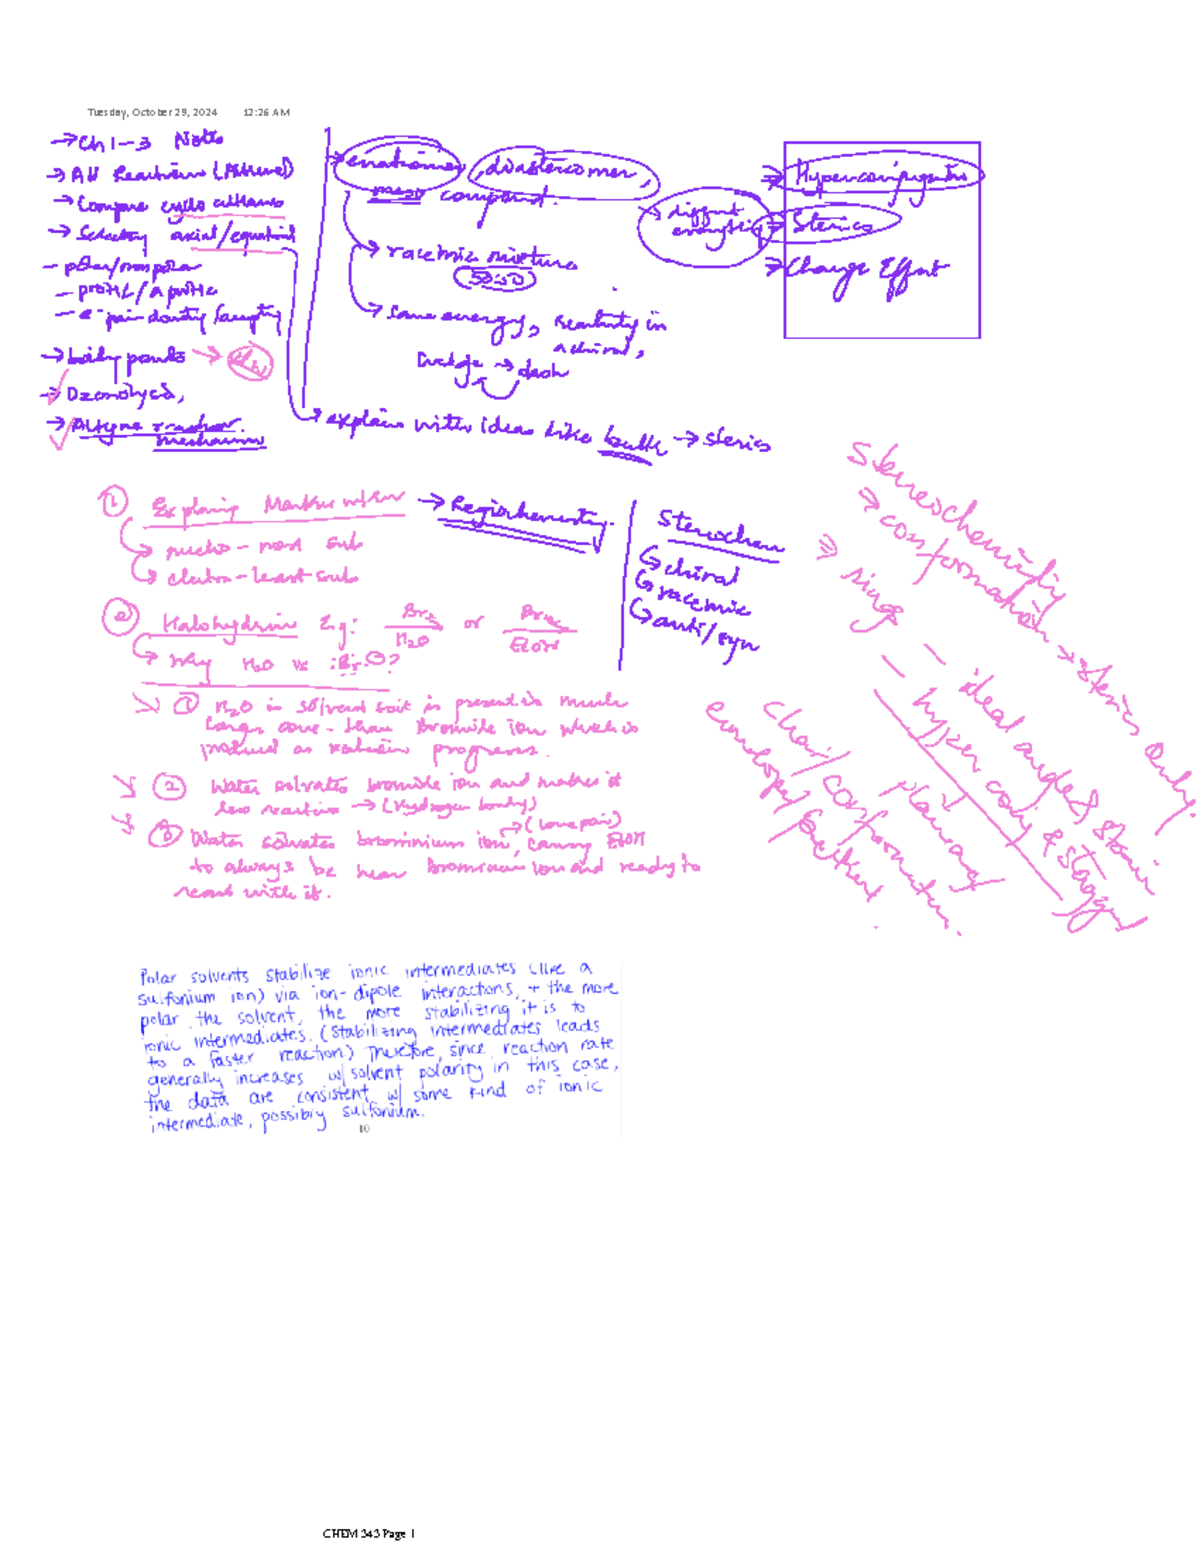 Tuesday, October 29, 2024 12:26 AM
→ Ch 1-3 Notes
→ All Reactions
→ Compare cyclo alkanes
→ axial/equatorial
- polar/nonpolar
- protic/aprotic
→ boiling points →
→ Ozonolysis,
→ Alkyne
mechanism
→ enantiomer, diastereomer,
meso compound.
→ racemic mixture
50:50
→ same energy, reactivity in
achiral,
wedge → dash
→ explain with ideas like bulk → sterics
→ different
energies
→ Hyperconjugation
→ Sterics
→ Charge Effect
① Explaining → Regiochemistry.
→ nucleo - most sub
→ electro - least sub
② Halohydrin E.g: Br₂/H₂O or Br₂/EtOH
→ Why H₂O vs :Br:⊖?
① H₂O is solvent so it is present in much
larger conc. than bromide ion which is
produced as reaction progress.
② Water solvates bromide ion and makes it
less reactive → (Hydrogen bonding)
③ Water solvates bromonium ion, → (lone pair) EtOH
to always be near bromonium ion and ready to
react with it.
Stereochem
↪ chiral
↪ racemic
↪ anti/syn
Stereochemistry
→ conformation → sterics only.
⇒ rings
- ideal angles, steric
- hyper conj & staggered
planar
chair/conformation.
envelope/
Polar solvents stabilize ionic intermediates (like a
sulfonium ion) via ion-dipole interactions, + the more
polar the solvent, the more stabilizing it is to
ionic intermediates. (Stabilizing intermediates leads
to a faster reaction) Therefore, since reaction rate
generally increases w/ solvent polarity in this case,
the data are consistent w/ some kind of ionic
intermediate, possibly sulfonium.
10
CHEM 343 Page 1